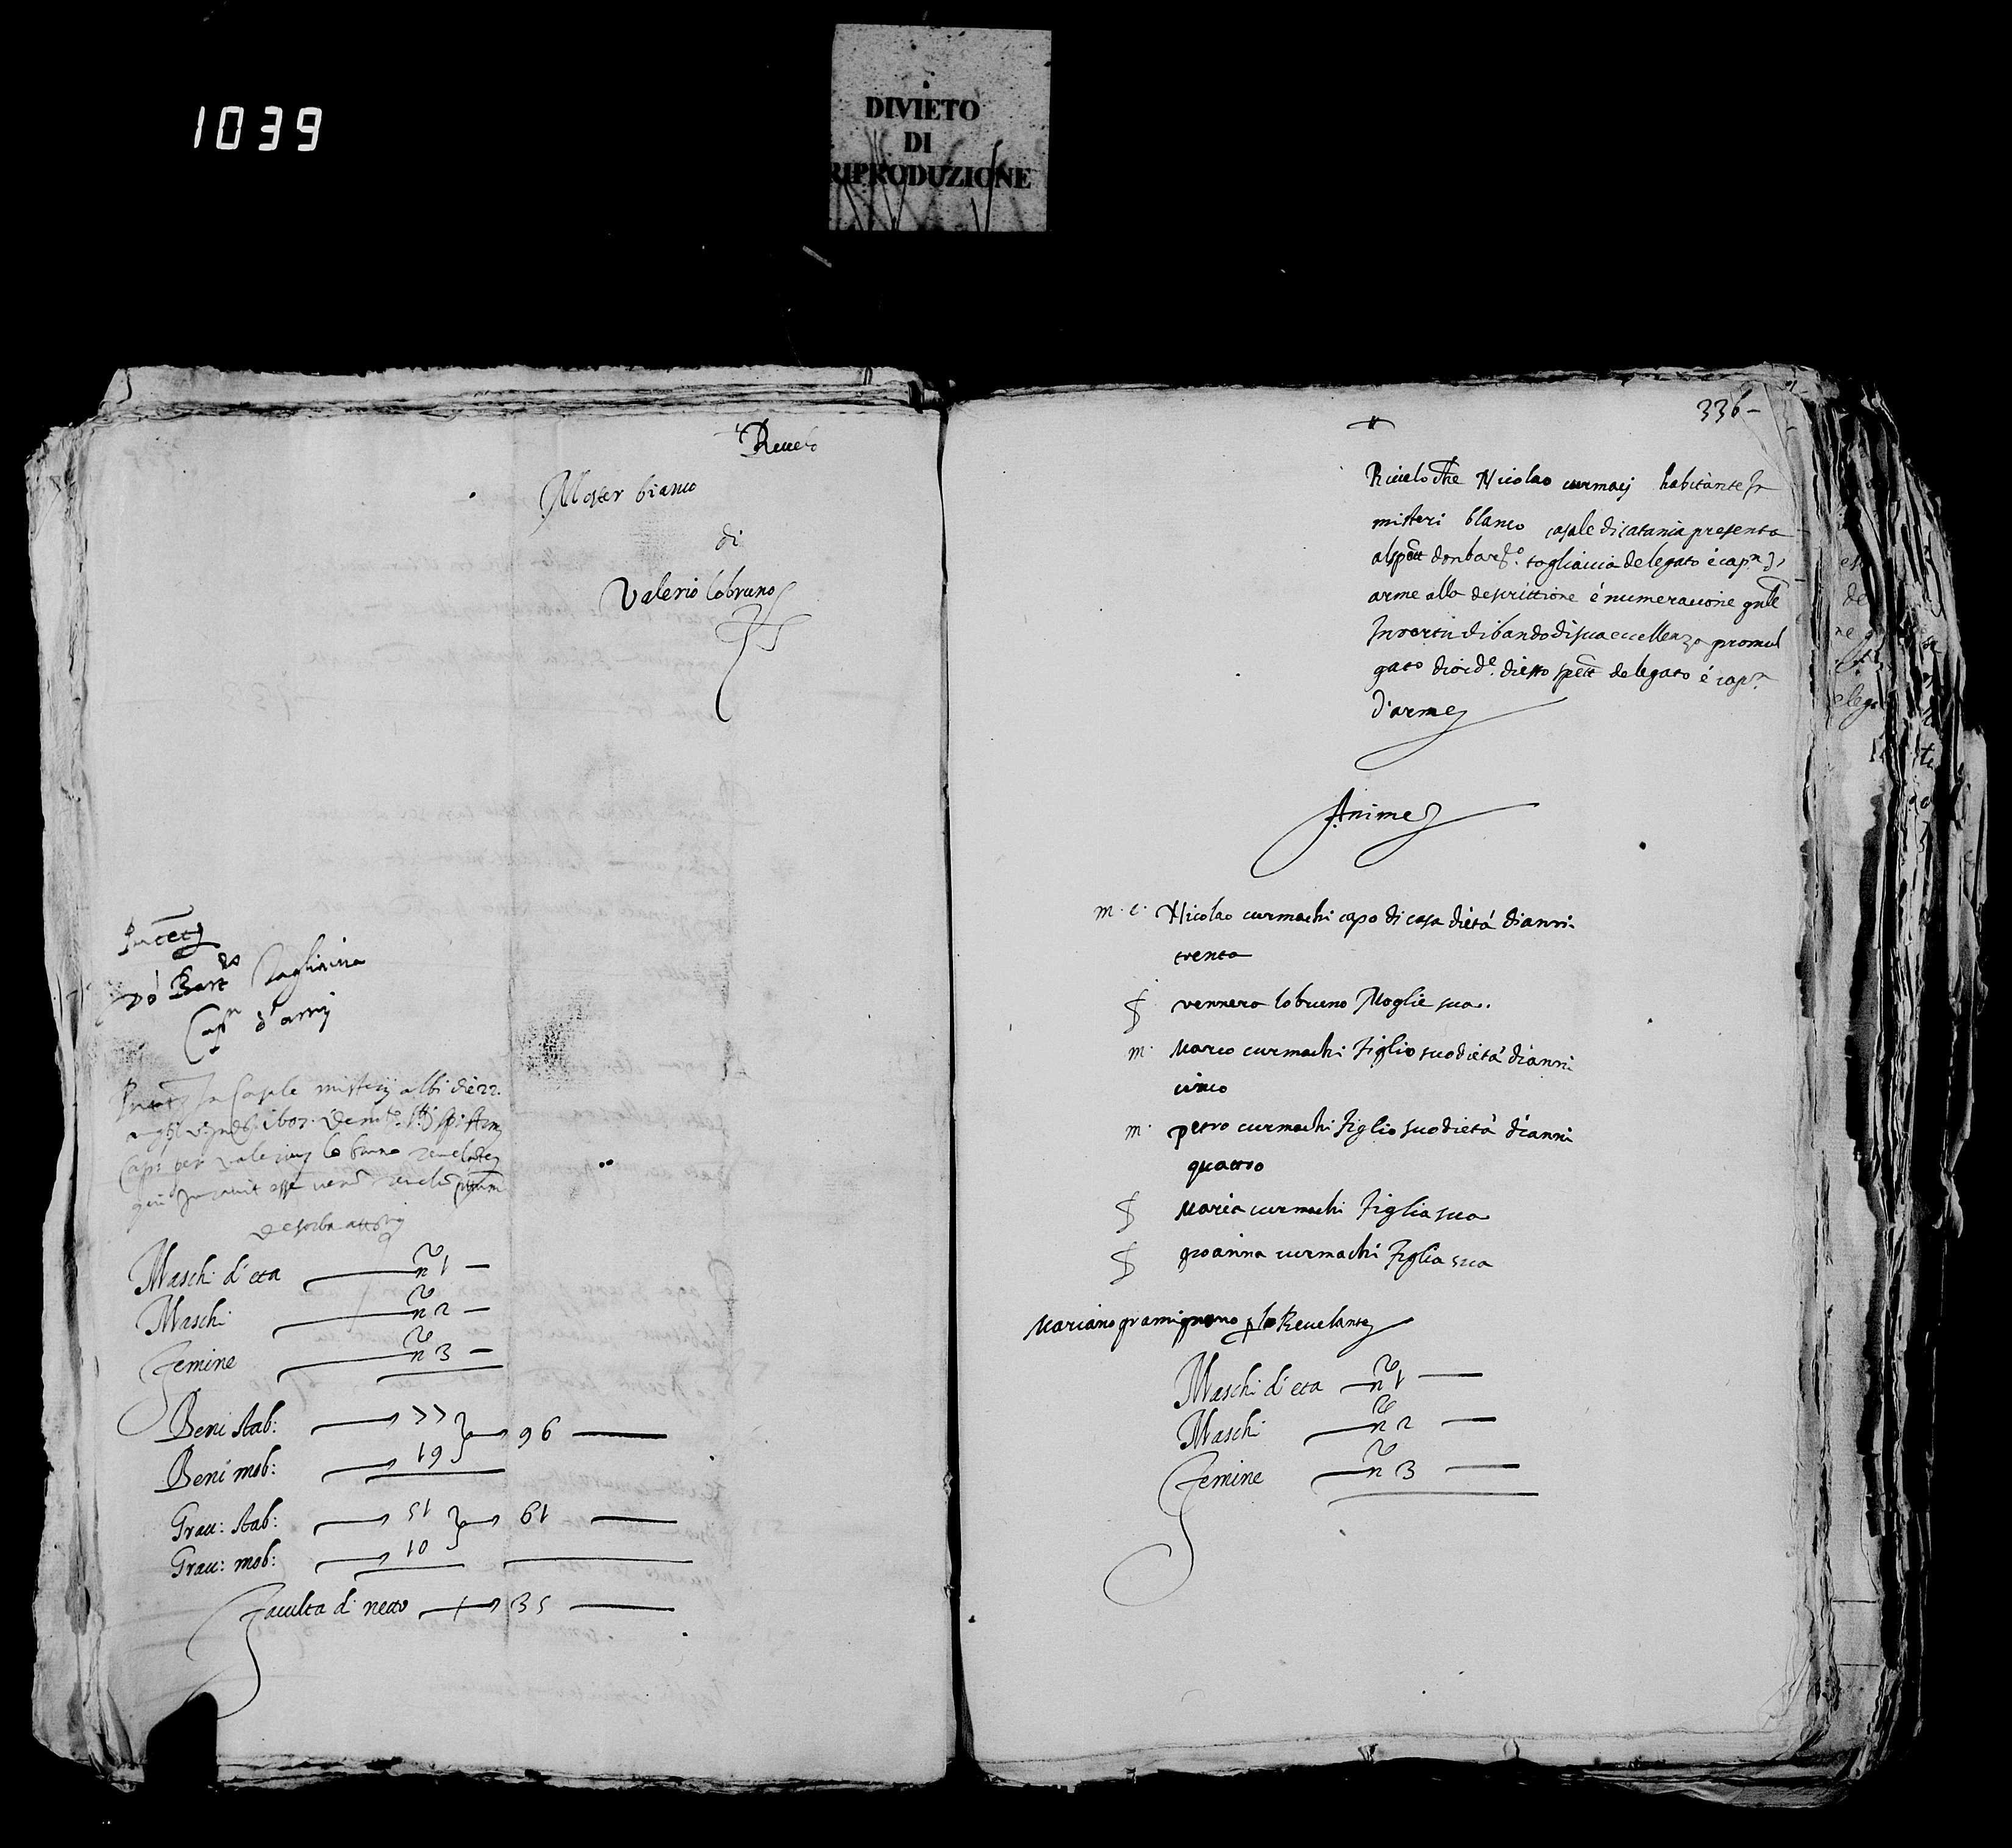 1039
DIVIETO
DI
RIPRODUZIONE
Revelo
Moster bianco
di
Valerio lobruno
Don Bart.eo Tagliavia
Cap.n d'armi
In Casale misterij albi die 22
per valerium lo bruno revelantem
qui Juravit esse
Maschi d'eta n.o 1
Maschi n.o 2
Femine n.o 3
Beni stab: 77
96
Beni mob: 19
Grau: stab: 51
61
Grau: mob: 10
Faculta di netto 35
336
Rivelo che Nicolao curmacj habitante In
misteri blanco casale di catania presenta
al spett. don bar.eo tagliavia delegato é cap.n di
arme alla descrittione é numeracione gn͞le
In vertu di bando di sua eccellenza promul
gato di ord.e di esso spett. delegato é cap.n
d'arme
Anime
m. c. Nicolao curmachi capo di casa dietá di anni
trenta
f vennera lobruno Moglie sua.
m. Marco curmachi Figlio suo dietá di anni
cinco
m. petro curmachi Figlio suo dietà di anni
quattro
f Maria curmachi Figlia sua
f gioanna curmachi Figlia sua
Mariano gramignano p lo Revelante
Maschi d'eta n.o 1
Maschi n.o 2
Femine n.o 3